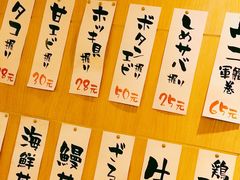 ウニ
軍艦巻
65元
しめサバ握り
25元
ボタンエビ握り
50元
ホッキ貝握り
28元
甘エビ握り
30元
タコ握り
18元
鶏
ざる
鰻
海鮮サ